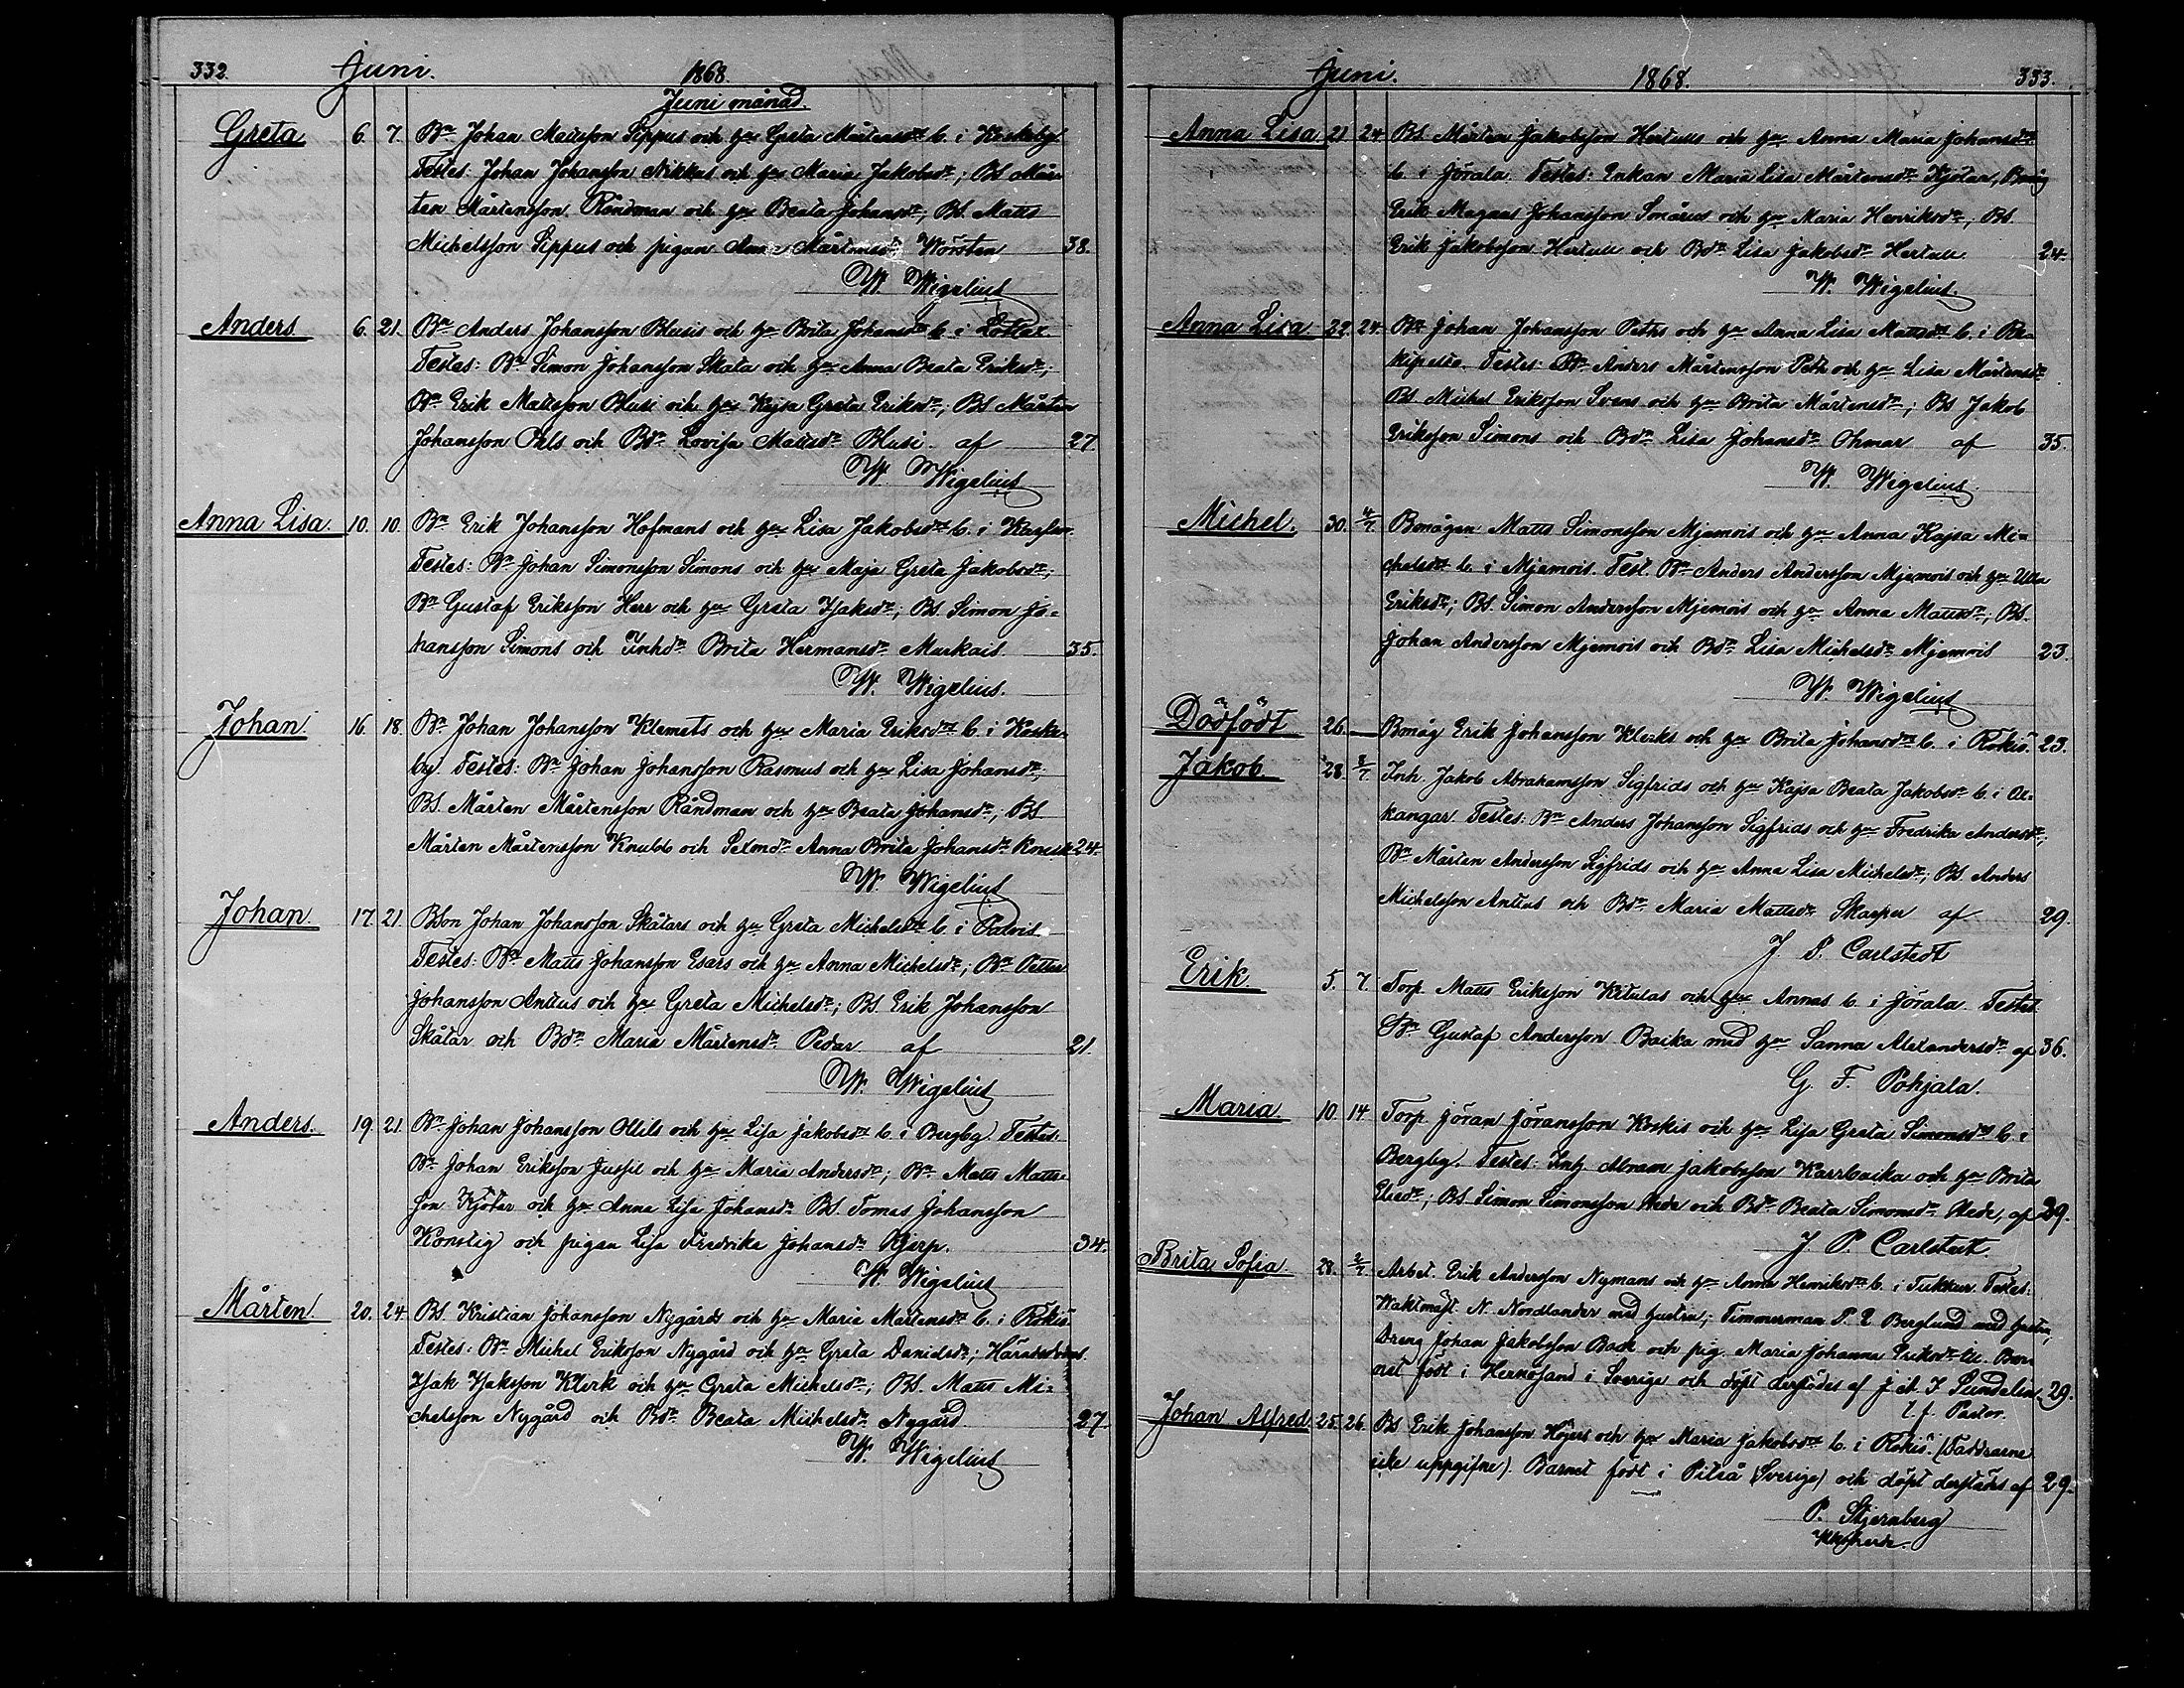 332. Juni. 1868.
Juni månad.
Greta 6. 7. Bn Johan Mattsson Sippus och hu Greta Mårtensdr b. i Koskeby
Testes: Johan Johansson Nikkus och hu Maria Jakobsdr; BS Mår-
ten Mårtensson Råndman och hu Beata Johansdr; BS. Matts
Michelsson Sippus och pigan Anna Mårtensdr Wörsten 38.
W. Wigelius
Anders 6. 21. Bn Anders Johansson Blusis och hu Brita Johansdr b. i
Testes: Bn Simon Johansson Skata och hu Anna Beata Eriksdr;
Bn Erik Mattsson Blusi och hu Kajsa Greta Eriksdr; BS Mårten
Johansson Ohls och Bdr Lovisa Mattsdr Blusi af 27
W. Wigelius
Anna Lisa. 10. 10. Bn Erik Johansson Hofmans och hu Lisa Jakobsdr b. i
Testes: Bn Johan Simonsson Simons och hu Maja Greta Jakobsdr;
Bn Gustaf Eriksson Herr och hu Greta Isaksdr; BS. Simon Jo-
hansson Simons och Inhdr Brita Hermansdr Markais 35.
W. Wigelius.
Johan 16. 18. Bn Johan Johansson Klemets och hu Maria Eriksdr b. i Koske-
by. Testes: Bn Johan Johansson Rasmus och hu Lisa Johansdr;
BS. Mårten Mårtensson Råndman och hu Beata Johansdr; BS
Mårten Mårtensson Knubb och Anna Brita Johansdr 24.
W. Wigelius
Johan. 17. 21. BSon Johan Johansson Skåtars och hu Greta Michelsdr b. i Palvis
Testes: Bn Matts Johansson Esars och hu Anna Michelsdr; Bn Petter
Johansson Anttus och hu Greta Michelsdr; BS. Erik Johansson
Skåtar och Bdr Maria Mårtensdr Pedar af 21.
W. Wigelius
Anders. 19. 21. Bn Johan Johansson Ollils och hu Lisa Jakobsdr b. i Bergby. Testes:
Bn Johan Eriksson Jussil och hu Maria Andersdr; Bn Matts Matts-
son Kjötar och hu Anna Lisa Johansdr BS. Tomas Johansson
Konstig och pigan Lisa Fredrika Johansdr Kjerp. 34.
W. Wigelius
Mårten. 20. 24. BS. Kristian Johansson Nygårds och hu Maria Mårtensdr b. i Rökiö
Testes: Bn Michel Eriksson Nygård och hu Greta Danielsdr;
Isak Isaksson Klerk och hu Greta Michelsdr; BS. Matts Mi-
chelsson Nygård och Bdr Beata Michelsdr Nygård 27.
W. Wigelius
Juni. 1868. 333.
Anna Lisa 21 24. BS. Mårten Jakobsson Hertulls och hu Anna Maria Johansdr
b. i Jörala. Testes: Enkan Maria Lisa Mårtensdr Kjötar, Bmåg
Erik Magnus Johansson Smårus och hu Maria Henriksdr; BS.
Erik Jakobsson Hertull och Bdr Lisa Jakobsdr Hertull 24.
W. Wigelius.
Anna Lisa 22. 24. Bn Johan Johansson Peths och hu Anna Lisa Mattsdr b. i Re-
kipelto. Testes Bn Anders Mårtensson Peth och hu Lisa Mårtensdr
BS Michel Eriksson Svens och hu Brita Mårtensdr; BS Jakob
Eriksson Simons och Bdr Lisa Johansdr Othmar af 35.
W. Wigelius.
Michel. 30. 4/7. Bmågen Matts Simonsson Mjemois och hu Anna Kajsa Mi-
chelsdr b. i Mjemois. Test. Bn Anders Andersson Mjemois och hu Ulla
Eriksdr; BS. Simon Andersson Mjemois och hu Anna Mattsdr; BS.
Johan Andersson Mjemois och Bdr Lisa Michelsdr Mjemois 23.
W. Wigelius
Dödfödt 26. — Bmåg Erik Johansson Klerks och hu Brita Johansdr b. i Rökiö 23.
Jakob 28. 8/7. Inh. Jakob Abrahamsson Sigfrids och hu Kajsa Beata Jakobsdr b. i Ox-
kangar Testes: Bn Anders Johansson Sigfrids och hu Fredrika Andersdr;
Bn Mårten Andersson Sigfrids och hu Anna Lisa Michelsdr; BS. Anders
Michelsson Anttus och Bdr Maria Mattsdr Skarper af 29.
J. P. Carlstedt
Erik. 5. 7. Torp. Matts Eriksson Ketulas och hu Annas b. i Jörala Testes
Bn Gustaf Andersson Backa med hu Sanna Alexandersdr af 36.
G. F. Pohjala.
Maria 10. 14 Torp. Jöran Jöransson Koskis och hu Lisa Greta Simonsdr b. i
Bergby. Testes: Inh. Abram Jakobsson Karrbacka och hu Brita
Elisdr; BS. Simon Simonsson Hede och Bdr Beata Simonsdr Hede, af 39.
J. P. Carlstedt
Brita Sofia. 28. 2/7. Arbet. Erik Andersson Nymans och hu Anna Henriksdr b. i Tukkur. Testes:
Waktmäst. N. Nordlander med hustru; Timmerman P. E Berglund med hustru;
Dreng Johan Jakobsson Back och pig. Maria Johanna Eriksdr Bar-
net född i Hernösand i Sverige och döpt derstädes af J. A. I Sundelin 29.
t. f. Pastor.
Johan Alfred 25. 26. BS Erik Johansson Höjers och hu Maria Jakobsdr b. i Rökiö. (Faddrarne
icke uppgifne). Barnet född i Piteå (Sverige) och döpt derstädes af 29.
P. Stjernberg
Kkoherde.